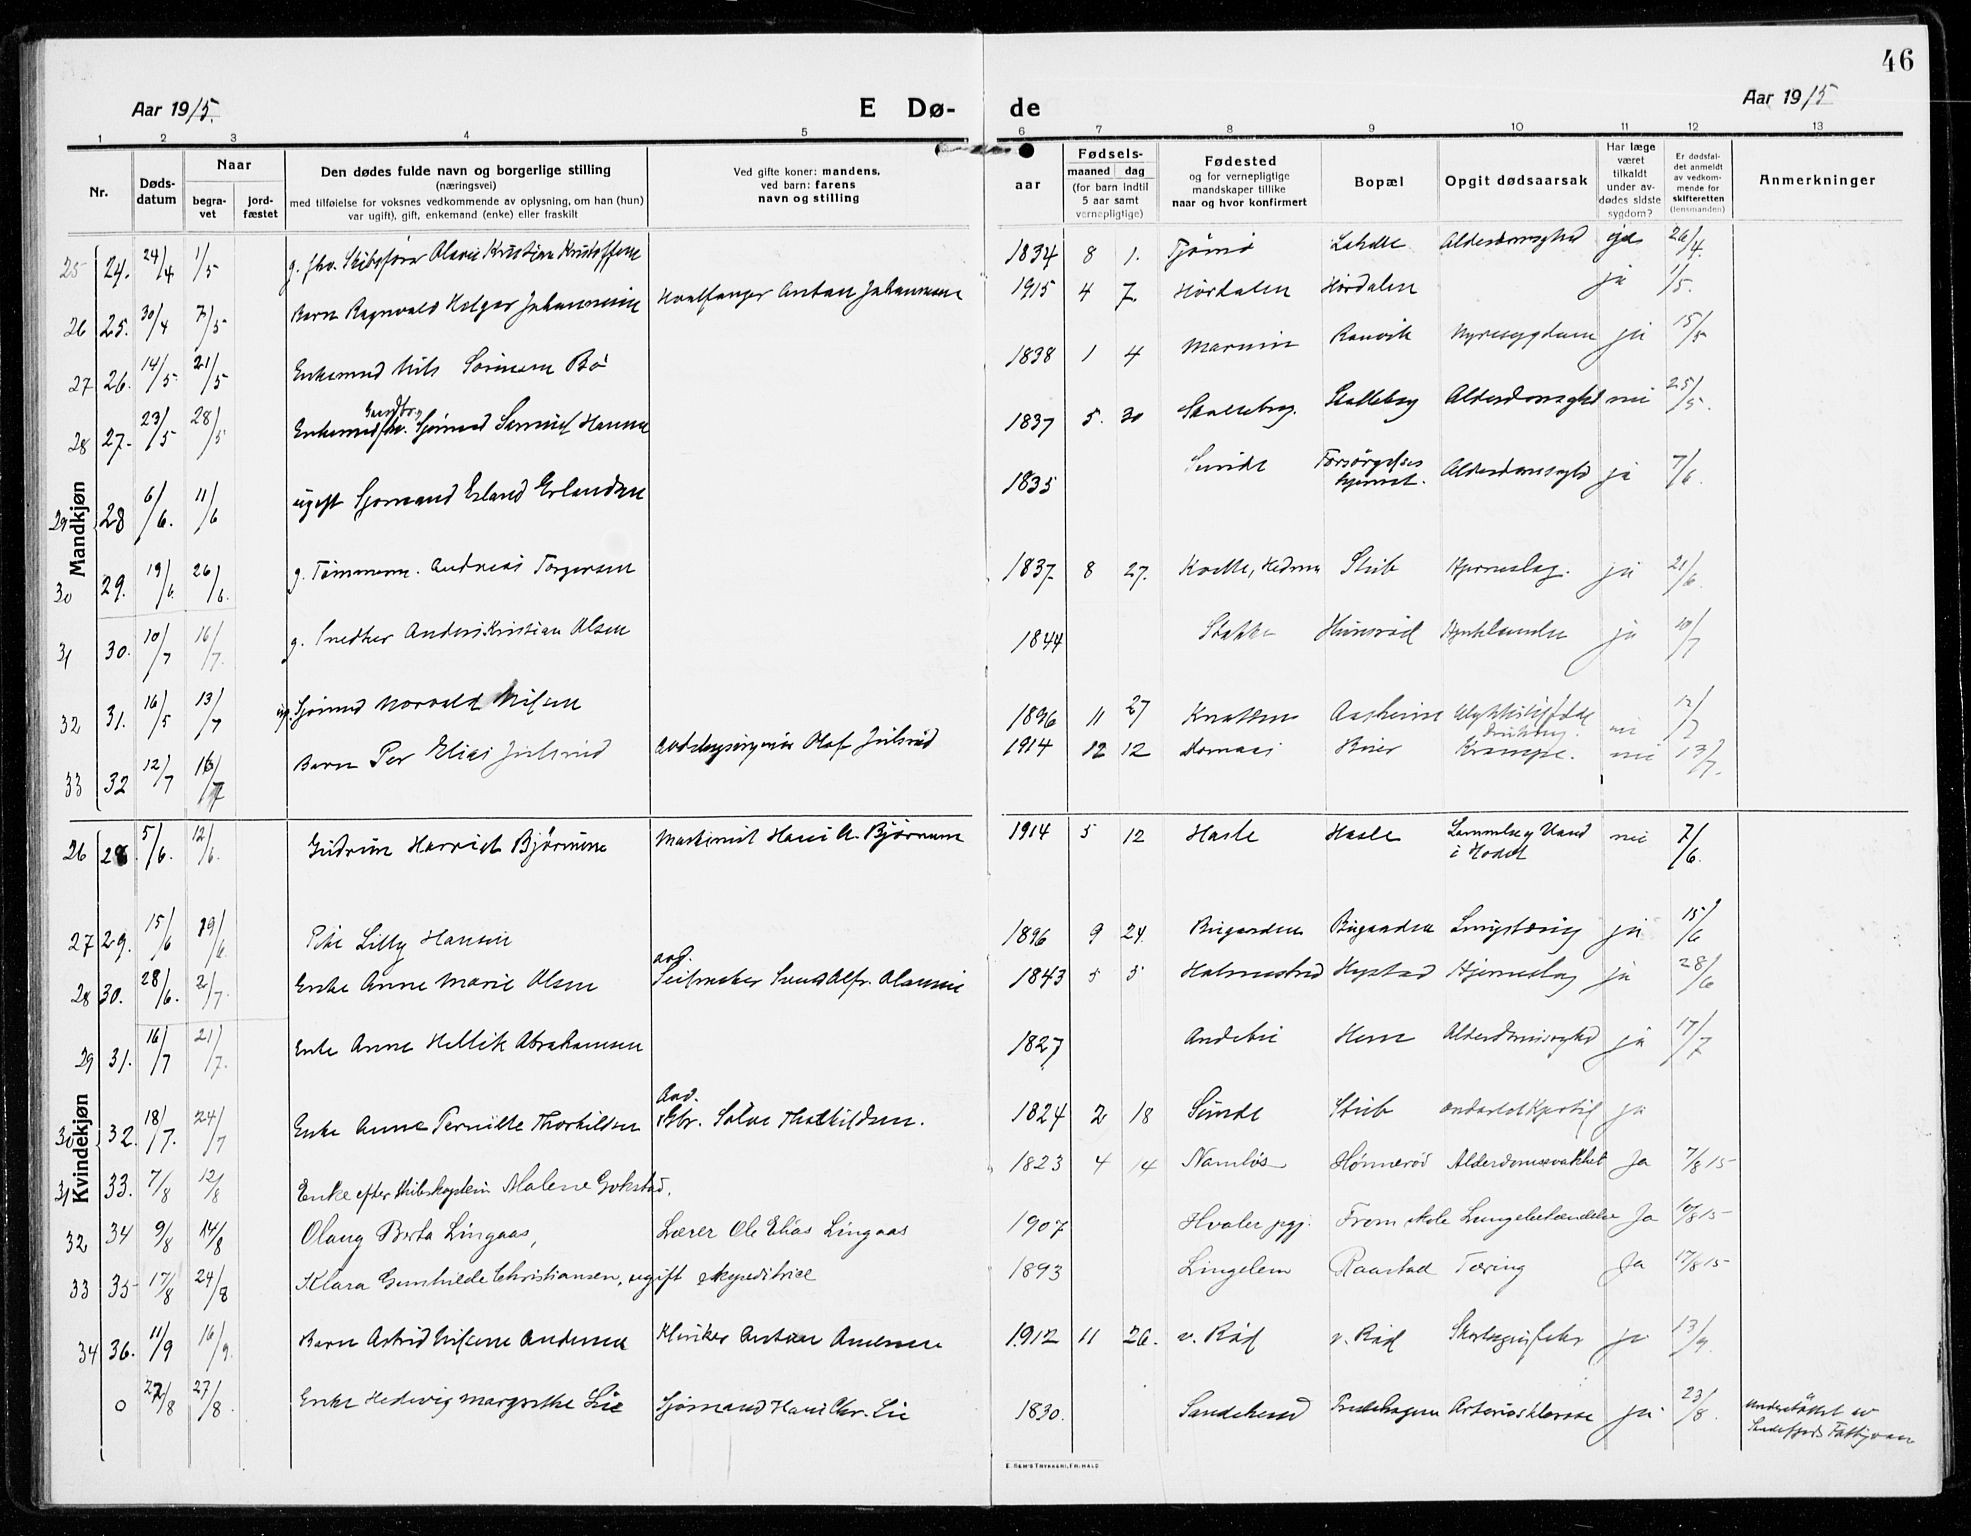 46
Aar 1915.
E Dø-
de
Aar 1915
1 2 3 4 5 6 7 8 9 10 11 12 13
Nr.
Døds-
datum
Naar
begra-
vet
jord-
fæstet
Den dødes fulde navn og borgerlige stilling
(næringsvei)
med tilføielse for voksnes vedkommende av oplysning, om han (hun)
var ugift), gift, enkemand (enke) eller fraskilt
Ved gifte koner: mandens,
ved barn: farens
navn og stilling
aar
Fødsels-
maaned dag
(for barn indtil
5 aar samt
vernepligtige)
Fødested
og for vernepligtige
mandskaper tillike
naar og hvor konfirmert
Bopæl
Opgit dødsaarsak
Har læge
været
tilkaldt
under av-
dødes sidste
sygdom?
Er dødsfal-
det anmeldt
av vedkom-
mende for
skifteretten
(lensmanden)
Anmerkninger
Mandkjøn
25 24. 24/4 1/5 g. fhv. Skibsfører Olavus Kristian Kristoffersen 1834 8 1. Tjømø Alderdomssyghd 26/4.
26 25. 30/4 7/5 Barn Ragnvald Holger Johannessen Hvalfanger Anton Johannessen 1915 4 7. Hørdalen Hørdalen ja 1/5.
27 26. 14/5 21/5 Enkemand Nils Sørensen Bø 1838 1 4 Ranvik Nyresygdom ja 15/5
28 27. 23/5 28/5 Enkemand fhv. Gaardbr. Sjømand Samuel Hansen 1837 5. 30 Skalleberg Skalleberg Alderdomssyghd nei 25/5.
29 28 6/6. 11/6 ugift Sjømand Erland Erlandsen 1835 Sunde Forsørgelses
hjemmet. Alderdomssyghd ja 7/6.
30 29. 19/6 26/6. g. Tømmerm. Andreas Torgersen 1837. 8 27. Stub Hjerneslag. ja 21/6.
31 30. 10/7 16/7. g. Snedker Anders Kristian Olsen 1844 Stokke Hunsrød ja 10/7
32 31. 16/5 13/7 ug. Sjømand Norvald Nilsen 1896 11 27 Knatten Ulykkestilfælde
Drukning. nei 12/7
33 32 12/7 Barn Per Elias Julsrud Olaf Julsrud 1914 12 12 Krampe. nei 13/7.
Kvindekjøn
26 28 5/6. 12/6. Gudrun Harriet Bjørnum Maskinist Hans A. Bjørnum 1914 5 12 Hasle Hasle
i Hodet nei 7/6.
27 29. 15/6 19/6. Pike Lilly Hansen 1896 9 24. Bugaarden Bugaarden Lungetæring ja 15/6
28 30. 28/6. 2/7. Enke Anne Marie Olsen avd. Seilmaker 1843 5 5 Holmestrand Hystad Hjerneslag ja 28/6
29 31. 16/7 21/7. Enke Anne Hellik Abrahamsen 1827 Andebu Hem Alderdomssyghd ja 17/7
30 32. 18/7. 24/7 Enke Anne Pernille Thorkildsen Avd. Gbr. Salve Thorkildsen. 1824 2 18 Sunde Stub ja
31 33. 7/8 12/8 Enke efter skibskaptein Malene Gokstad. 1823 4 14 Namløs Hønnerød Alderdomssvakhet Ja 7/8 15
32 34 9/8 14/8 Olaug Berta Lingaas, Lærer Ole Elias Lingaas 1907 Hvaler pgj. Fremskole Lungebetændelse Ja 10/8 15
33 35 17/8 24/8 Klara Gunhilde Christiansen, ugift ekspeditrice 1893 Lingelem Raastad Tæring Ja 17/8 15
34 36. 11/9 16/9. Barn Astrid Andersen Anton Andersen 1912 11 26. v. Rød v. Rød Skarlagensfeber ja 13/9.
0 22/8 27/8. Enke Hedevig Margrethe Lie Sjømand Hans Chr. Lie 1830. Sandeherred Arteriosklerose ja 23/8. understøttet av
Sandefjords Fattigvæsen
E. SEM'S TRYKKERI, FR.HALD